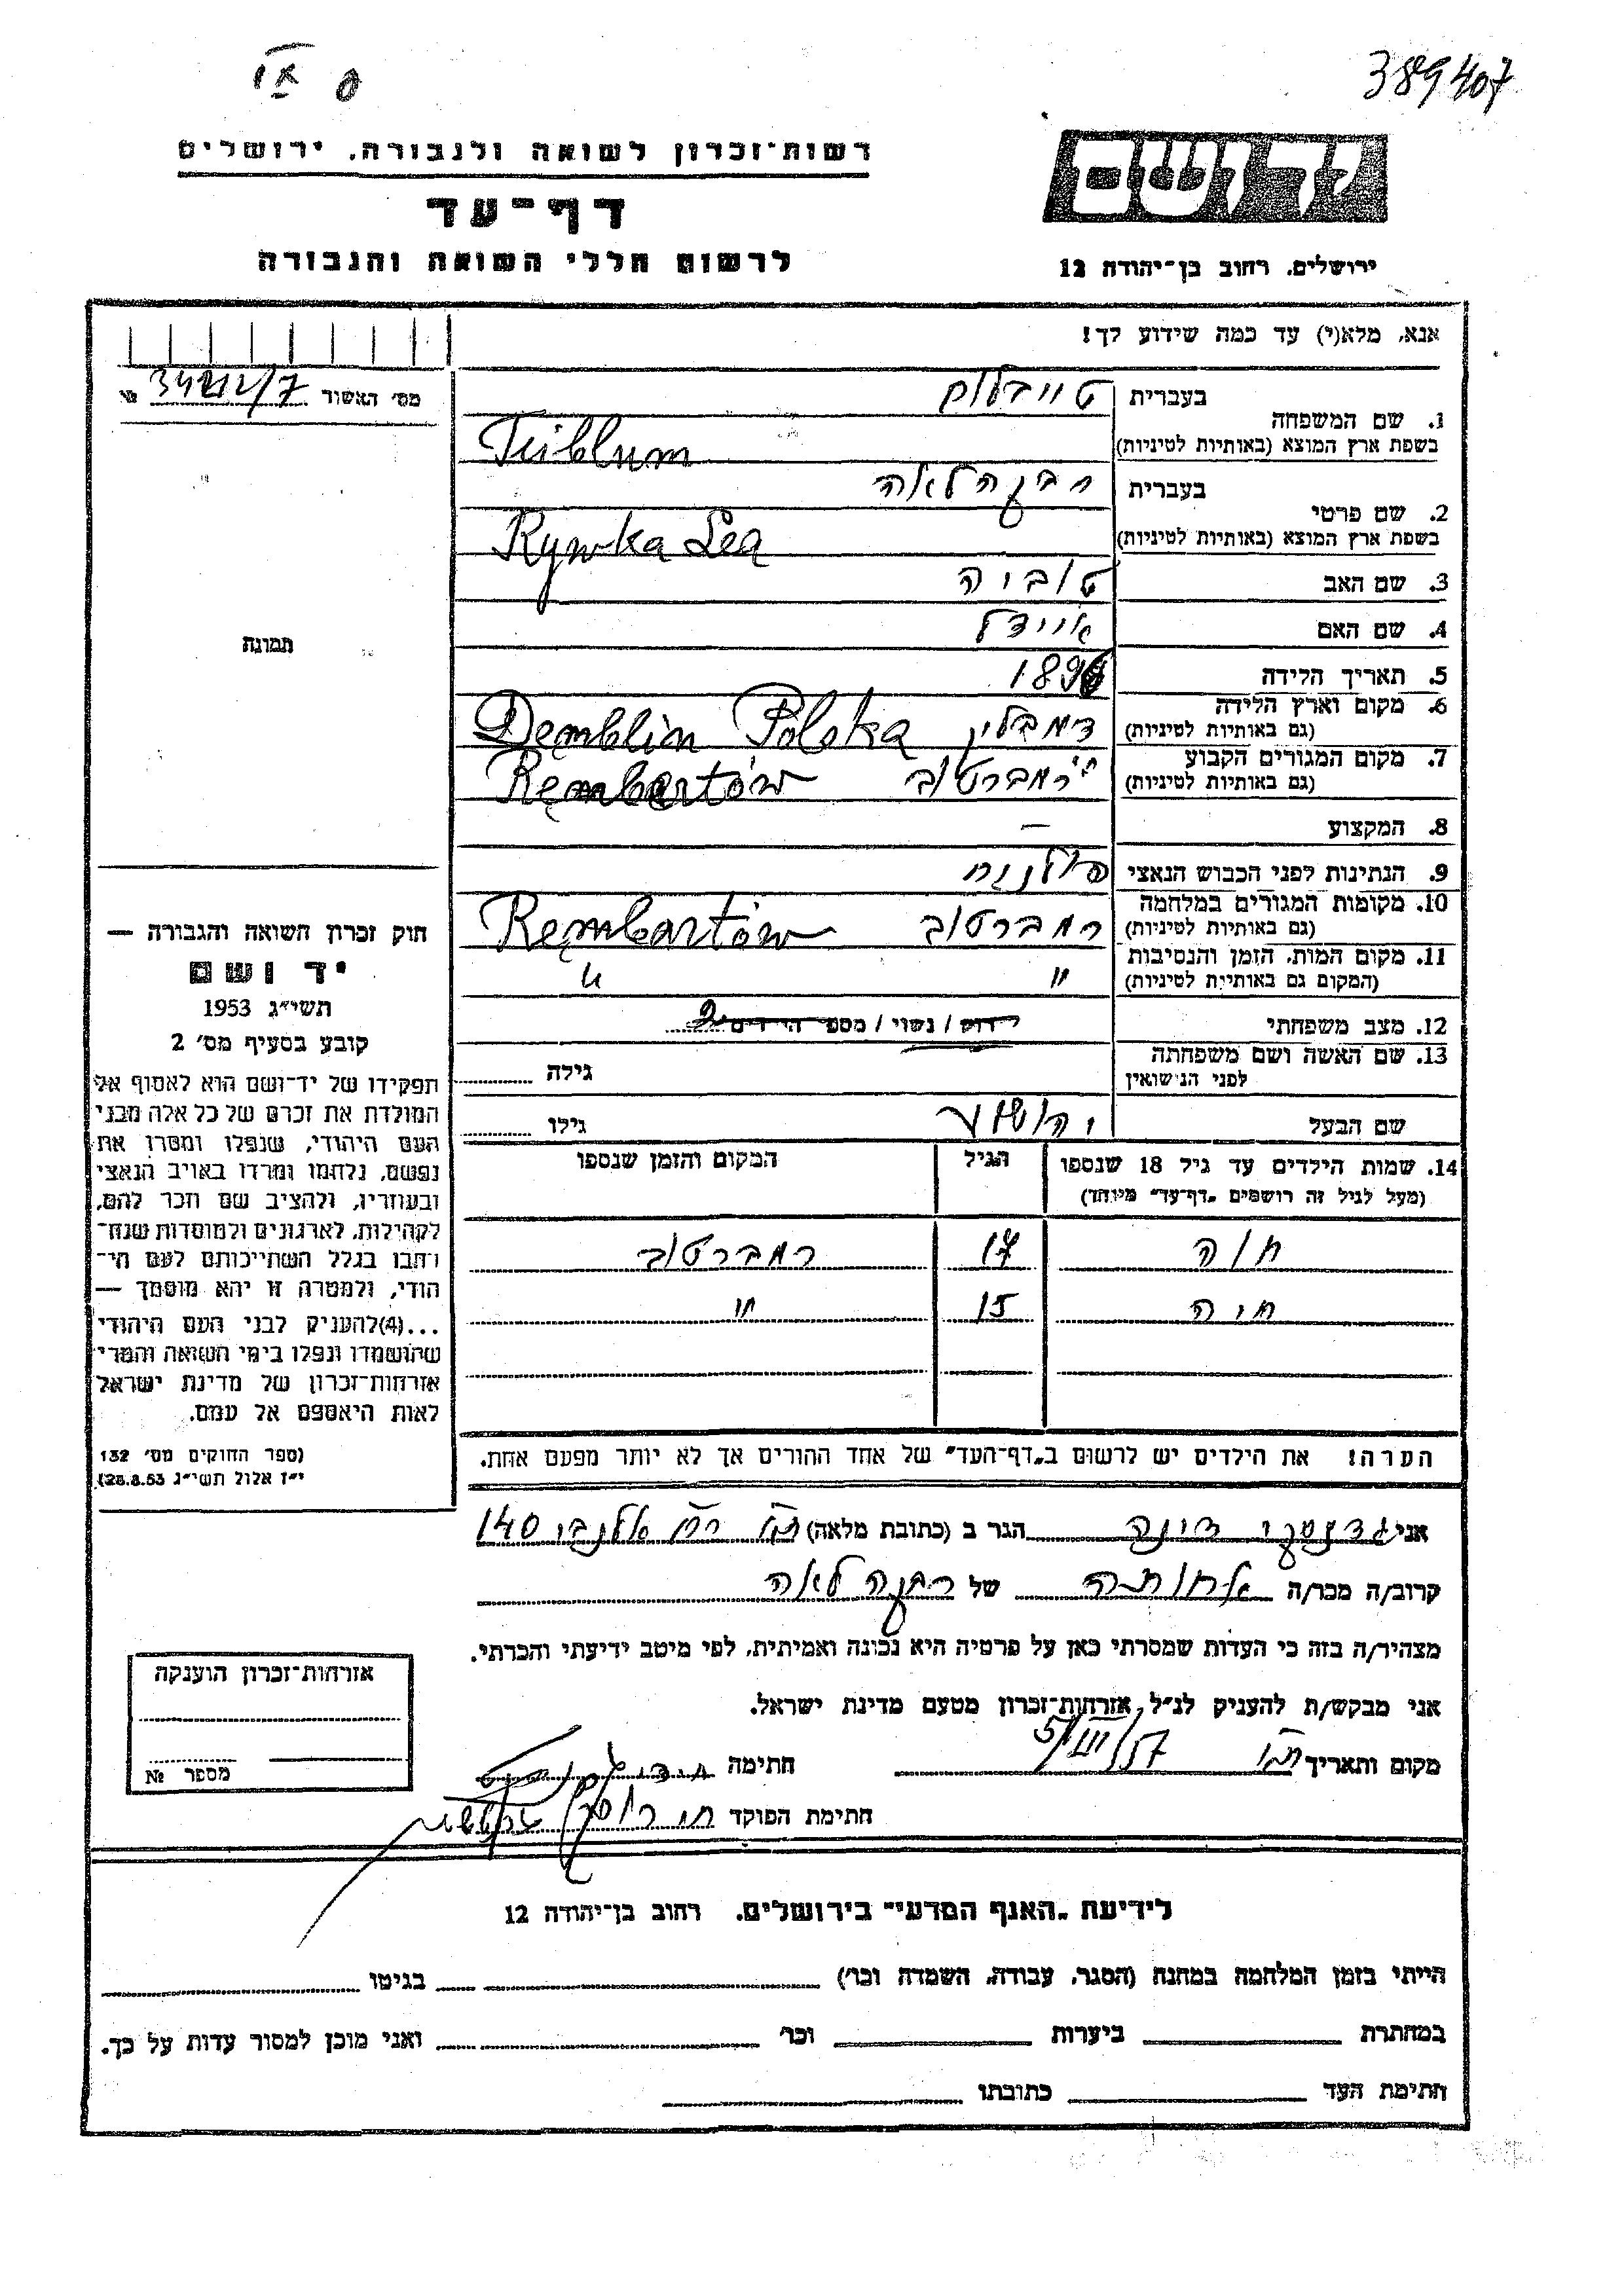 389407
רשות-זכרון לשואה ולגבורה. ירושלים
ידושם
דף-עד
לרשום חללי השואה והגבורה
ירושלים. רחוב בן-יהודה 12
אנא, מלא(י) עד כמה שידוע לך!
מס' האשור
№
1. שם המשפחה
בעברית
טויבלום
בשפת ארץ המוצא (באותיות לטיניות)
2. שם פרטי
בעברית
רבקה לאה
בשפת ארץ המוצא (באותיות לטיניות)
Rywka Lea
3. שם האב
טוביה
4. שם האם
איידל
5. תאריך הלידה
6. מקום וארץ הלידה
(גם באותיות לטיניות)
דמבלין Demblin Polska
7. מקום המגורים הקבוע
(גם באותיות לטיניות)
רמברטוב Rembertów
8. המקצוע
—
9. הנתינות לפני הכבוש הנאצי
פולנית
10. מקומות המגורים במלחמה
(גם באותיות לטיניות)
רמברטוב Rembartów
11. מקום המות, הזמן והנסיבות
(המקום גם באותיות לטיניות)
" "
12. מצב משפחתי
רווק / נשוי / מספר הילדים 2
13. שם האשה ושם משפחתה
לפני הנישואין
גילה
שם הבעל
יהושע
גילו
14. שמות הילדים עד גיל 18 שנספו
(מעל לגיל זה רושמים "דף-עד" מיוחד)
הגיל
המקום והזמן שנספו
חוה 17 רמברטוב
חיה 15 "
הערה! את הילדים יש לרשום ב"דף-העד" של אחד ההורים אך לא יותר מפעם אחת.
תמונה
חוק זכרון השואה והגבורה —
יד ושם
תשי"ג 1953
קובע בסעיף מס' 2
תפקידו של יד-ושם הוא לאסוף אל
המולדת את זכרם של כל אלה מבני
העם היהודי, שנפלו ומסרו את
נפשם, נלחמו ומרדו באויב הנאצי
ובעוזריו, ולהציב שם וזכר להם,
לקהילות, לארגונים ולמוסדות שנח-
רבו בגלל השתייכותם לעם הי-
הודי, ולמטרה זו יהא מוסמך —
...(4)להעניק לבני העם היהודי
שהושמדו ונפלו בימי השואה והמרי
אזרחות-זכרון של מדינת ישראל
לאות היאספם אל עמם.
(ספר החוקים מס' 132
י"ז אלול תשי"ג 28.8.53)
אני דינה הגר ב (כתובת מלאה) רח אלנבי 140
קרוב/ה מכר/ה אחותה של רבקה לאה
מצהיר/ה בזה כי העדות שמסרתי כאן על פרטיה היא נכונה ואמיתית, לפי מיטב ידיעתי והכרתי.
אני מבקש/ת להעניק לנ"ל אזרחות-זכרון מטעם מדינת ישראל.
מקום ותאריך 5/III/57 חתימה
חתימת הפוקד
אזרחות-זכרון הוענקה
מספר №
לידיעת "האגף המדעי" בירושלים. רחוב בן-יהודה 12
הייתי בזמן המלחמה במחנה (הסגר, עבודה, השמדה וכו') בגיטו
במחתרת ביערות וכו' ואני מוכן למסור עדות על כך.
חתימת העד כתובתו